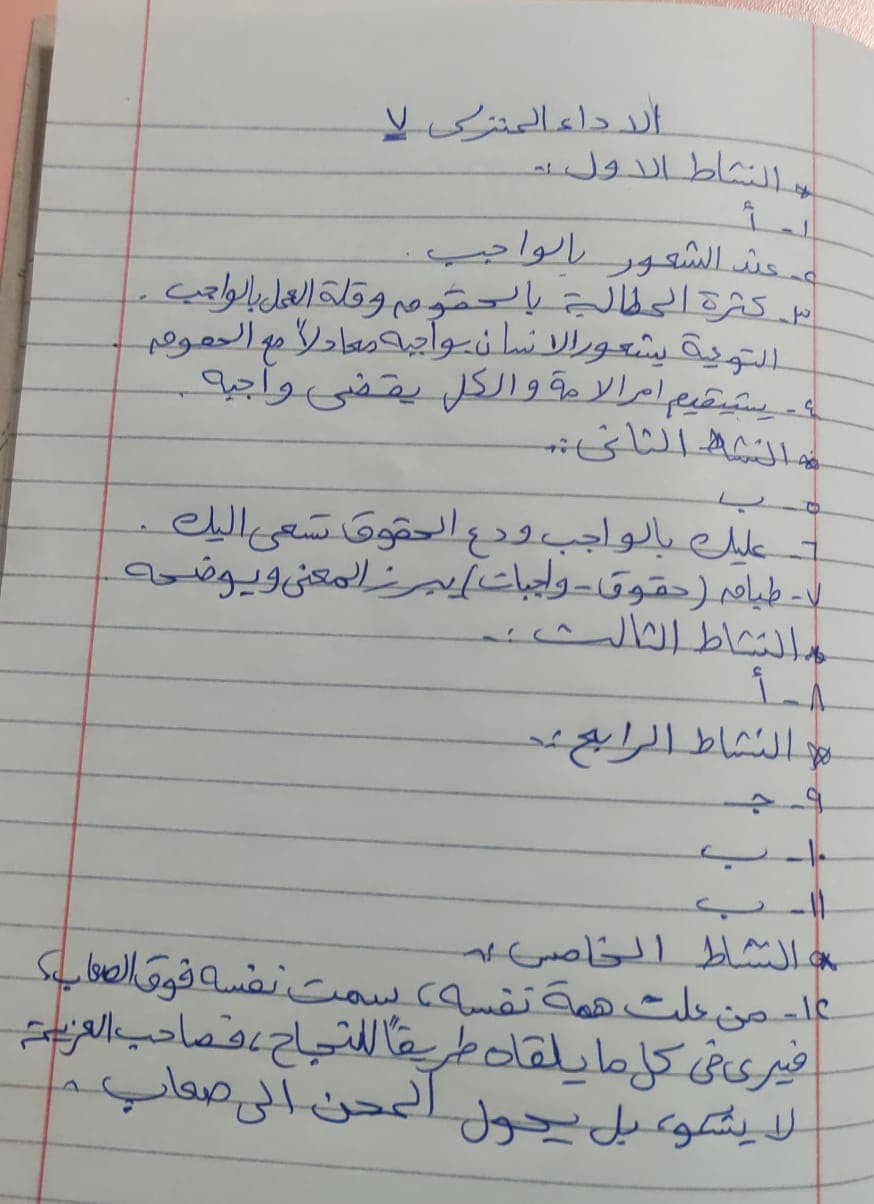 الاداء المنزلى ٧
* النشاط الاول :-
١- أ
٢- عند الشعور بالواجب .
٣- كثرة المطالبة بالحقوق وقلة العمل بالواجب .
التوعية يشعور الانسان بواجبه معادلاً مع الحقوق .
٤- يستقيم امر الامة والكل يقضى واجبه .
* النشاط الثانى :-
٥- ب
٦- عليك بالواجب ودع الحقوق تسعى اليك .
٧- طباق (حقوق - واجبات) يبرز المعنى ويوضحه
* النشاط الثالث :-
٨- أ
* النشاط الرابع :-
٩- جـ
١٠- ب
١١- ب
* النشاط الخامس :-
١٢- من علت همة نفسه، سمت نفسه فوق الصعاب،
فيرى فى كل ما يلقاه طريقاً للنجاح، فصاحب العزيمة
لا يشكو، بل يحول المحن الى صعاب .